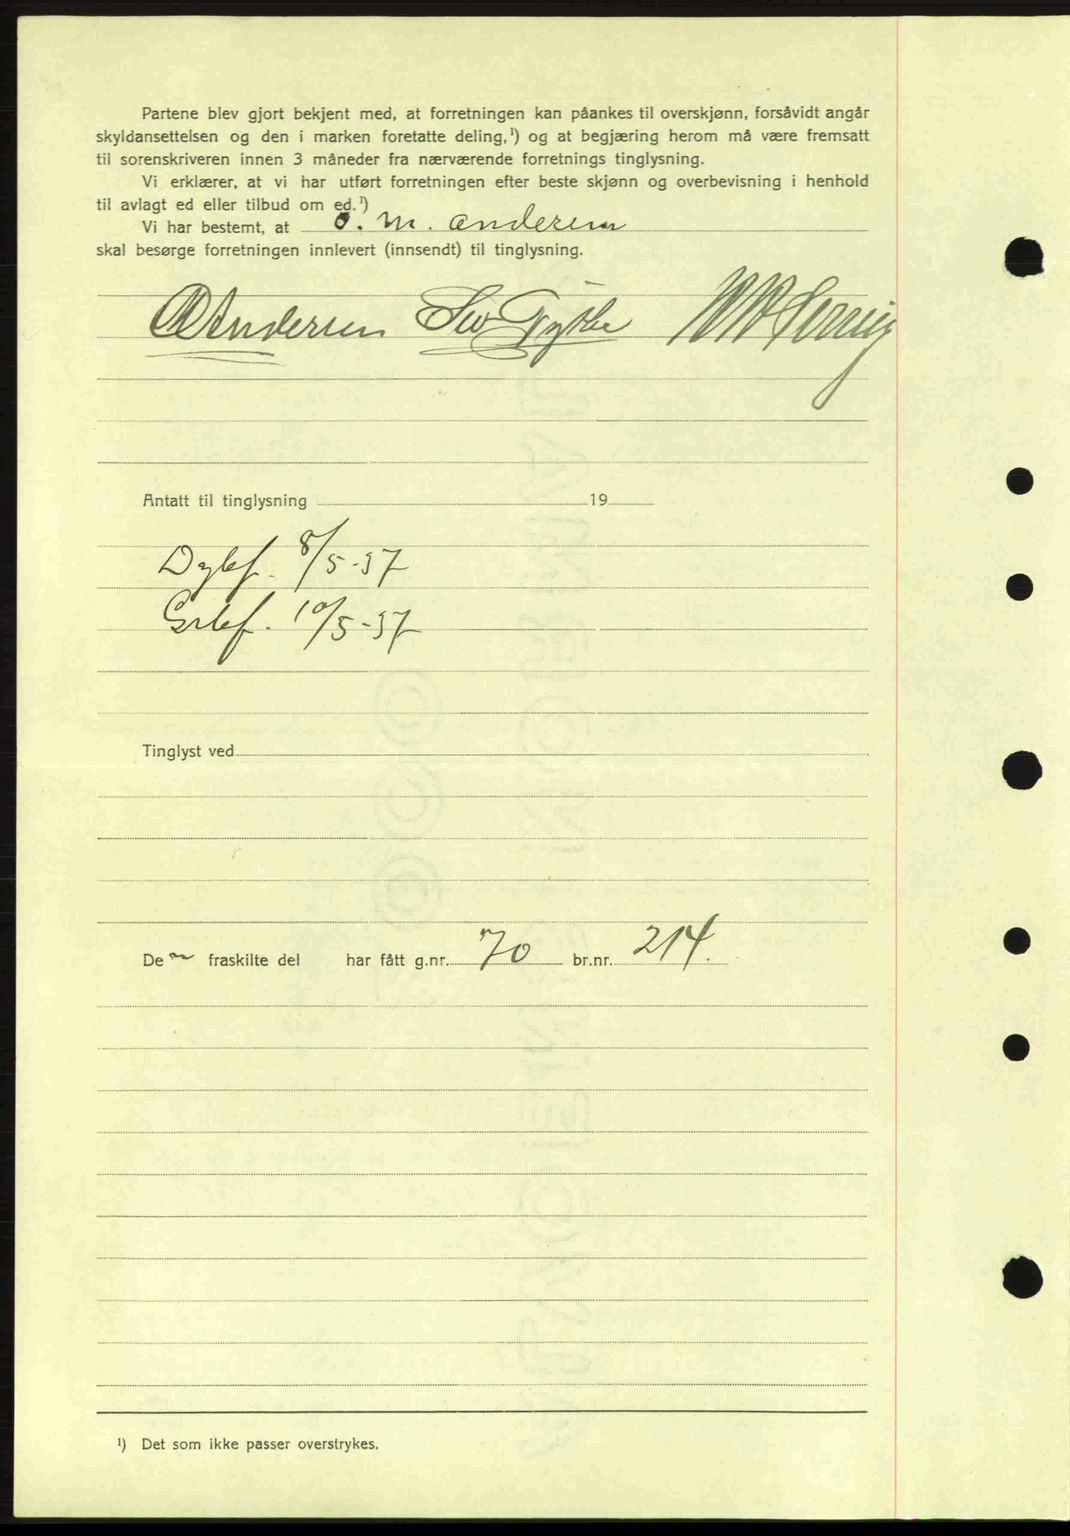 Partene blev gjort bekjent med, at forretningen kan påankes til overskjønn, forsåvidt angår
skyldansettelsen og den i marken foretatte deling,¹) og at begjæring herom må være fremsatt
til sorenskriveren innen 3 måneder fra nærværende forretnings tinglysning.
Vi erklærer, at vi har utført forretningen efter beste skjønn og overbevisning i henhold
til avlagt ed eller tilbud om ed.¹)
Vi har bestemt, at O. M. Andersen
skal besørge forretningen innlevert (innsendt) til tinglysning.
Andersen
Antatt til tinglysning 19
Dgbf. 8/5-37
10/5-37
Tinglyst ved
De n fraskilte del har fått g.nr. 70 br.nr. 214.
¹) Det som ikke passer overstrykes.